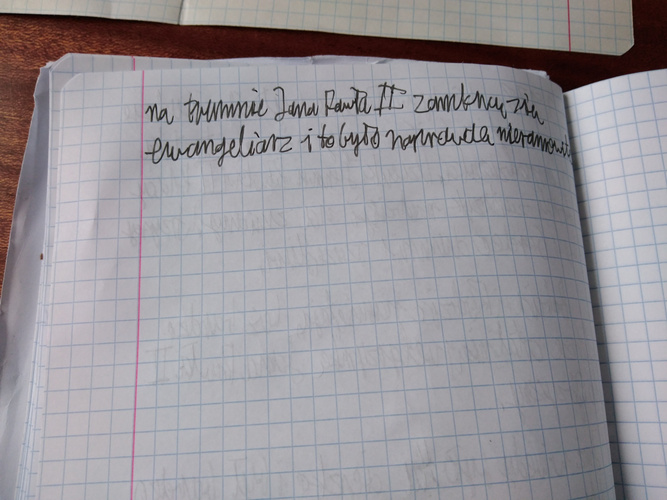 na trumnie Jana Pawła II zamknął się
ewangeliarz i to było naprawdę niesamowite